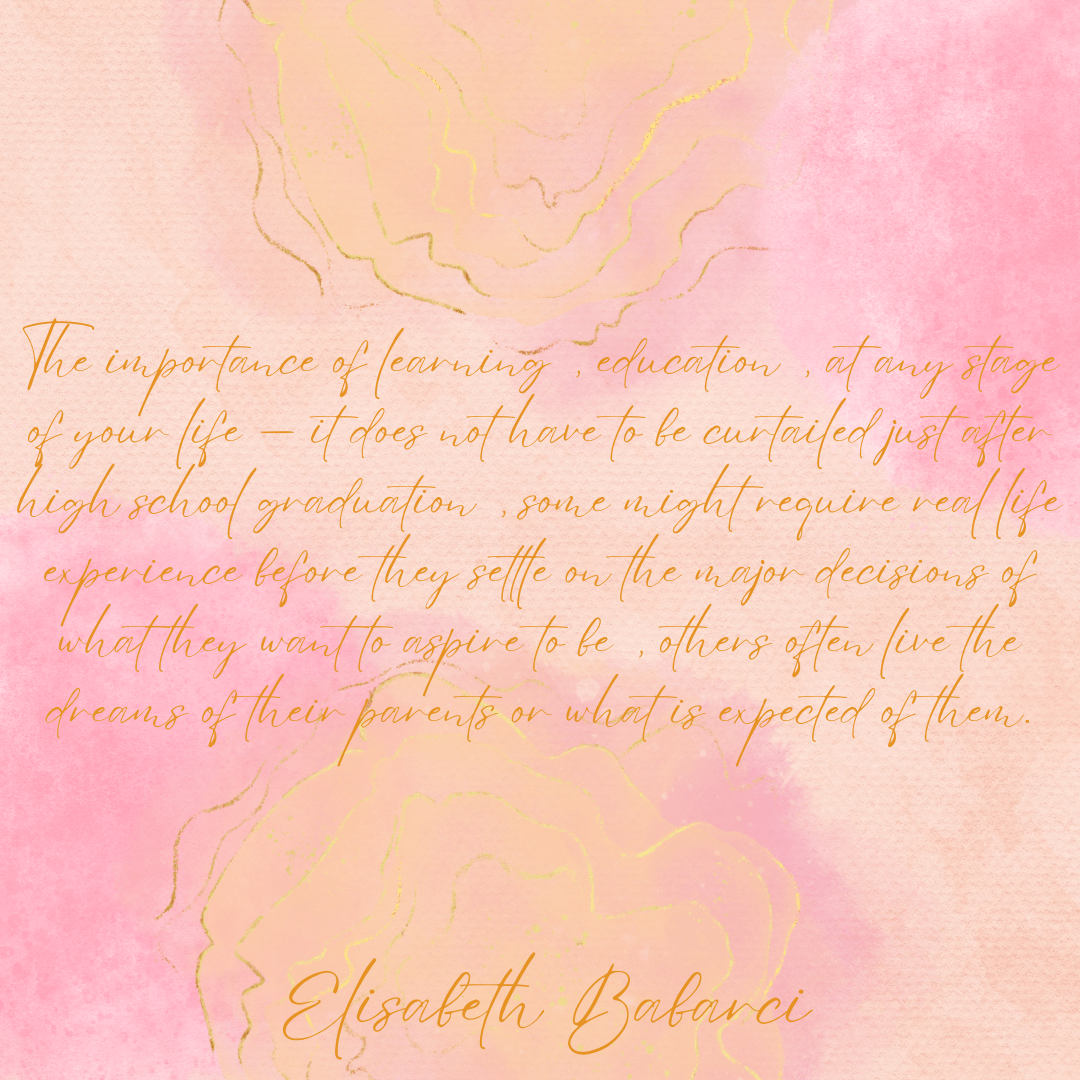 The importance of learning , education , at any stage
of your life – it does not have to be curtailed just after
high school graduation , some might require real life
experience before they settle on the major decisions of
what they want to aspire to be , others often live the
dreams of their parents or what is expected of them.
Elisabeth Babarci